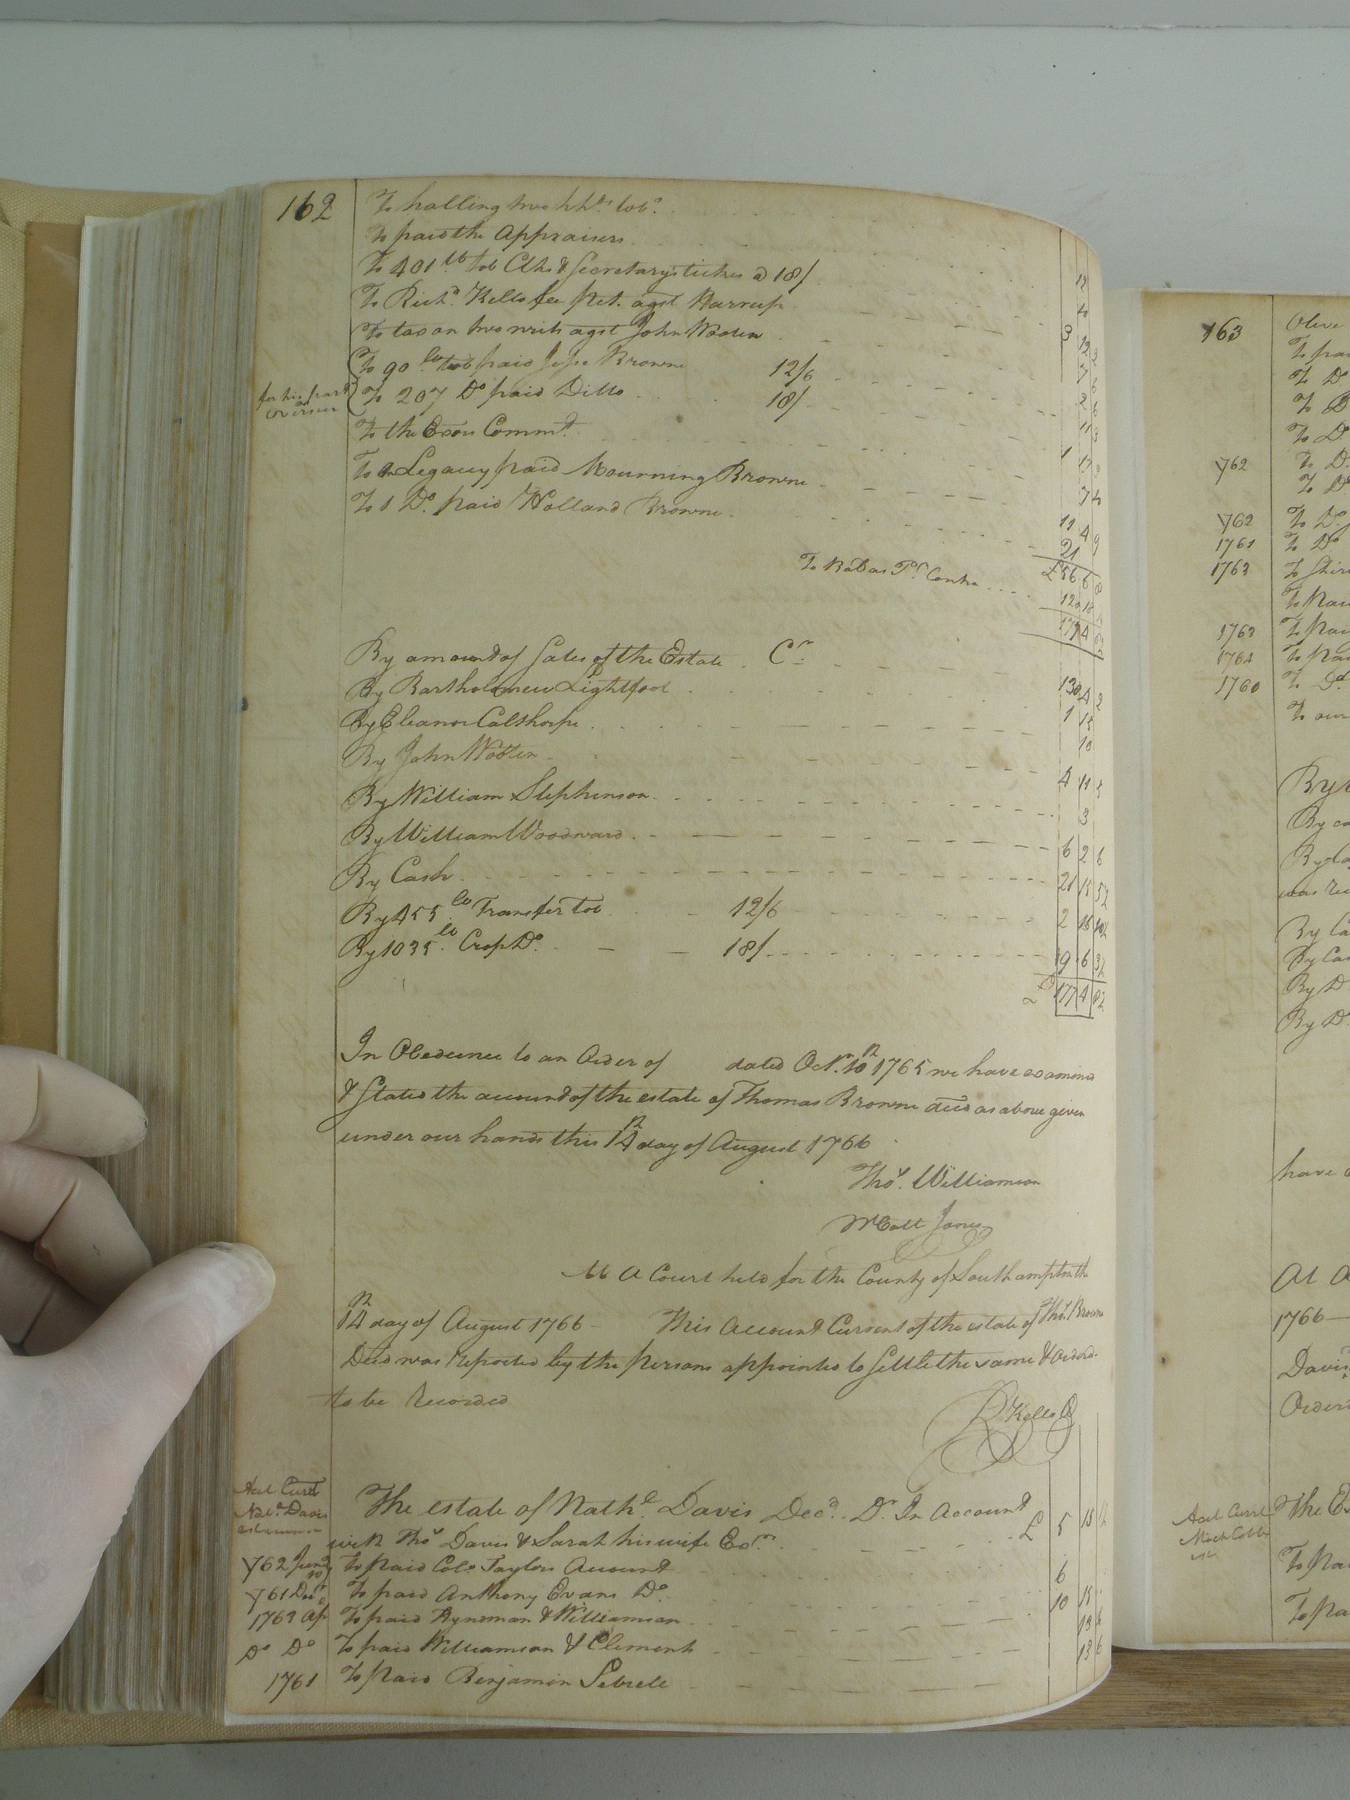 162
To halling two hhds tobo
To paid the Appraisers 12
To 401 lb tob Clks & Secretarys tickets @ 18/ 3 12 2
To Richd Kello fee Pet. agst Harrup
To tax on two writs agst John Wooten
To 90 lb tob paid Jesse Browne 12/6
for his part as overseer
To 207 Do paid Ditto 18/
To the Exors Commt.
To a Legacy paid Mourning Browne
To 1 Do. paid Holland Browne 21
£56 6
To Bal as Pr Contra
177 4
Cr
By amount of Sales of the Estate 130 4 2
By Bartholomew Lightfoot 1 15
By Eleanor Calthorpe 10
By John Wooten 4 11 5
By William Stephenson 3
By William Woodward 6 2 6
By Cash 21 15
By 455 lb Transfer tob 12/6 2 16
By 1035 lb Crop Do. 18/ 9 6
£ 177 4
In Obedience to an Order of dated Octr. 10th 1765 we have examind
& Stated the account of the estate of Thomas Browne decd as above given
under our hands this 14th day of August 1766
Thos. Williamson
Jones
At A Court held for the County of Southampton the
14th day of August 1766 – This Account Current of the estate of Thos. Browne
Decd was reported by the persons appointed to settle the same & Orderd
to be Recorded
R. Kello
Act Curt
Nathl Davis
The estate of Nathl. Davis Decd. Dr. In Account
with Thos Davis & Sarah his wife Exr. £ 5 15
1762 To paid Colo Taylors Account 6
1761 Decr To paid Anthony Evans Do. 10 15
1763 Ap To paid Hynsman & Williamson 13 6
Do Do To paid Williamson & Clements 13 6
1761 To paid Benjamin Sebrele
163
Olive
To pai
To Do
To D
To D
1762 To D
To D
1762 To D
1761 To Do
1763 To Shir
To Pai
1763 To Pai
1764 To Pai
1760 To Do
To our
By
By ca
By
was
By Ca
By Cas
By D
By D
have
At A
1766 –
Davis
Order
Act Curt
The E
To Pa
To pa